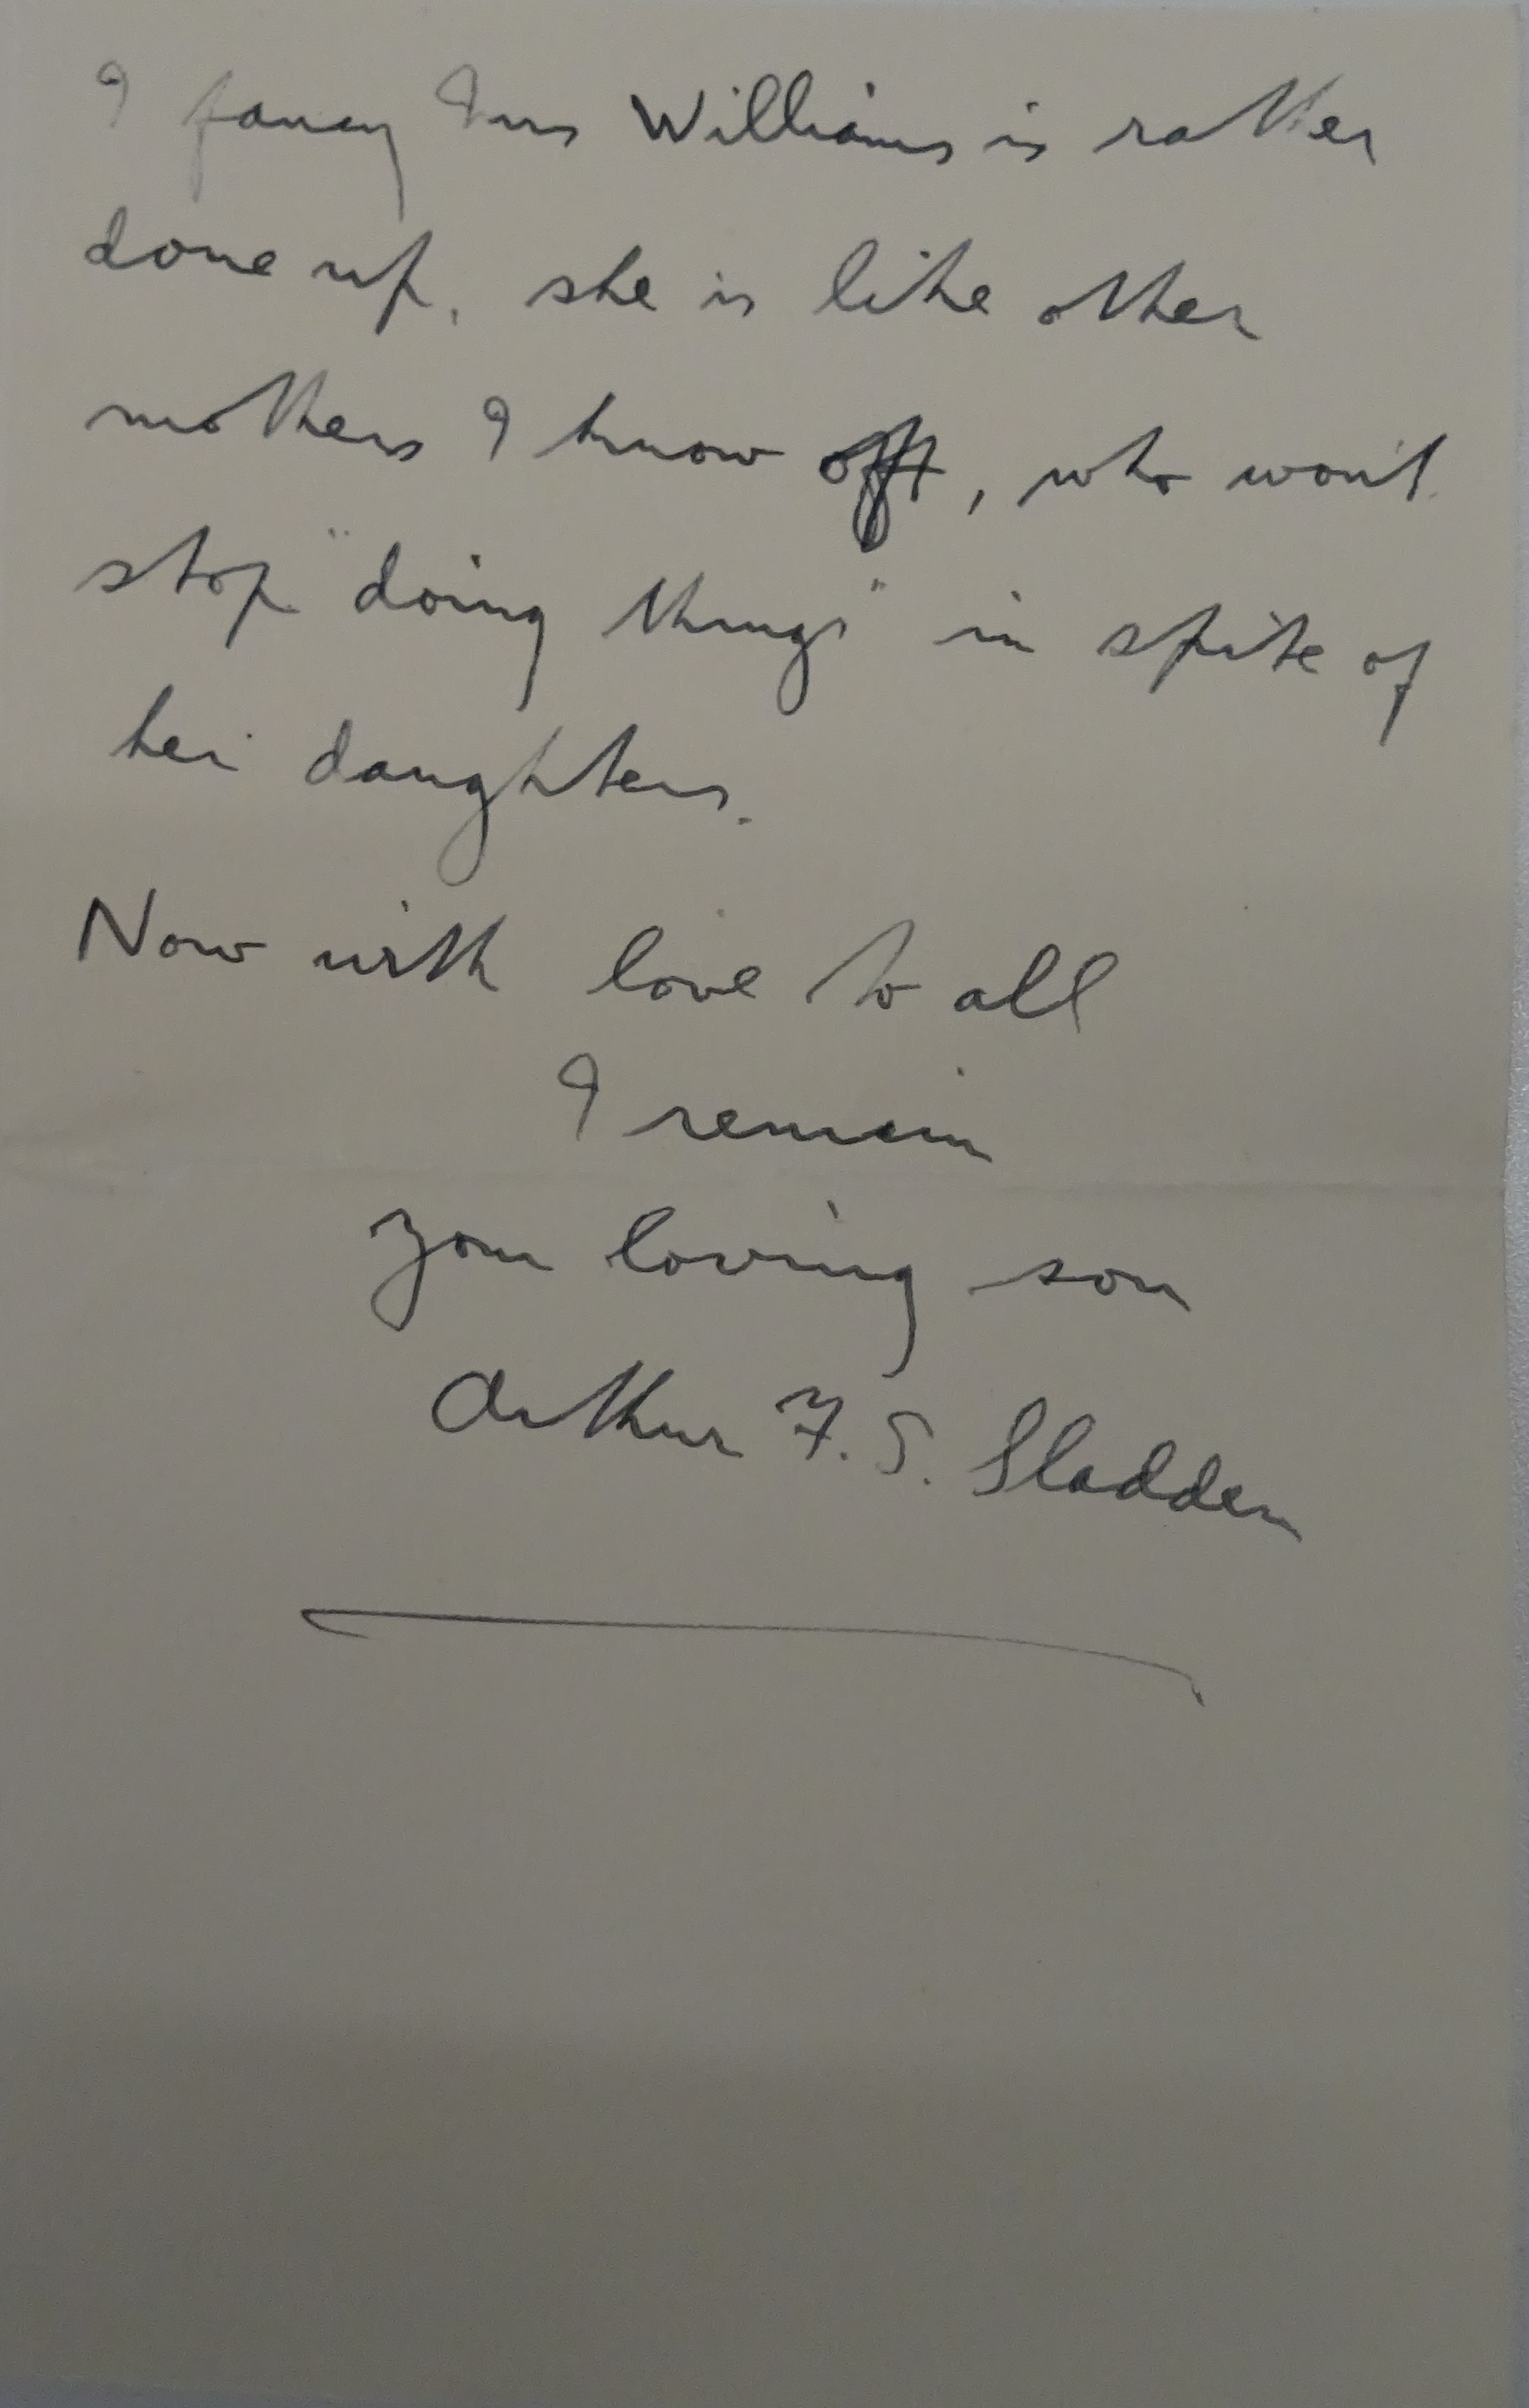 I fancy Mrs Williams is rather
done up, she is like other
mothers I know off, who won't
stop "doing things" in spite of
her daughters.
Now with love to all
I remain
your loving son
Arthur F. S. Sladden